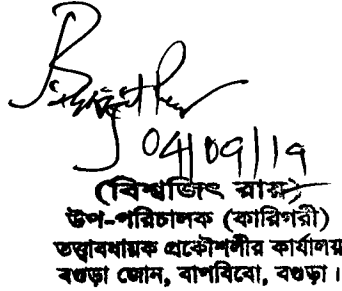 04/09/19
(বিশ্বজিৎ রায়)
উপ-পরিচালক (কারিগরী)
তত্ত্বাবধায়ক প্রকৌশলীর কার্যালয়
বগুড়া জোন, বাপবিবো, বগুড়া।